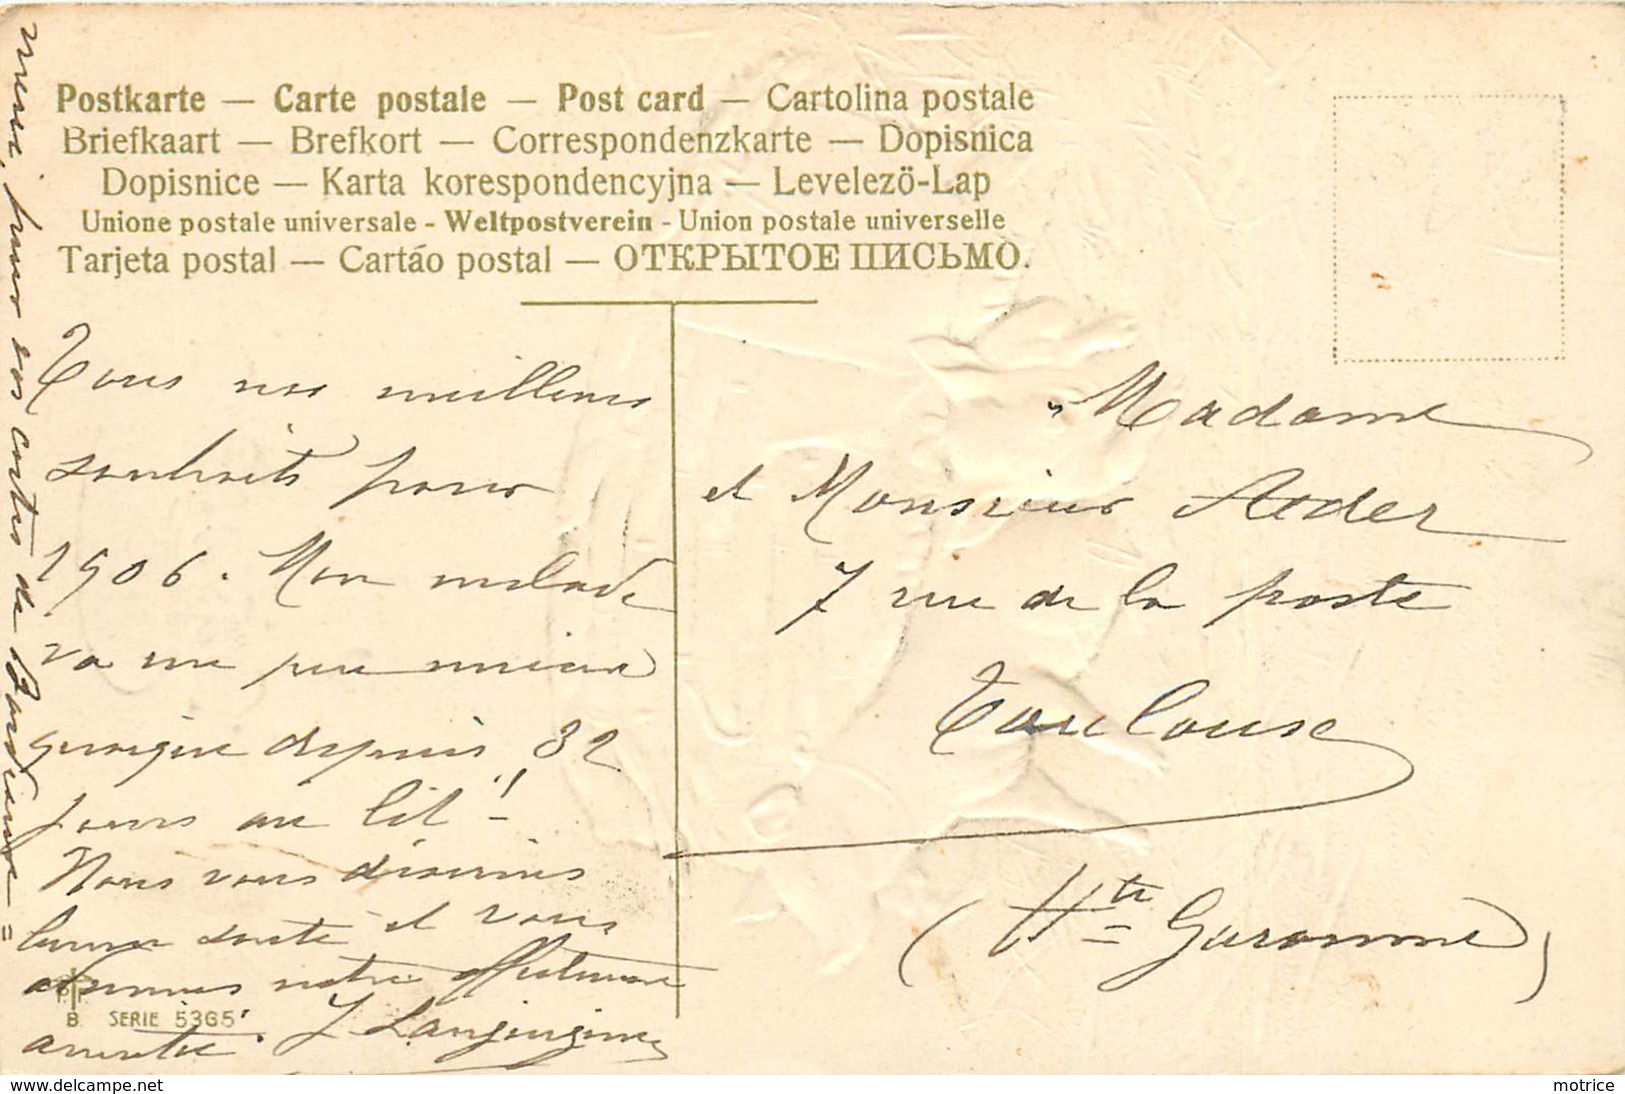 Postkarte — Carte postale — Post card — Cartolina postale
Briefkaart — Brefkort — Correspondenzkarte — Dopisnica
Dopisnice — Karta korespondencyjna — Levelezö-Lap
Unione postale universale - Weltpostverein - Union postale universelle
Tarjeta postal — Cartáo postal — ОТКРЫТОЕ ПИСЬМО.
Tous nos meilleurs
souhaits pour
1906. Mon malade
va un peu mieux
quoique depuis 32
jours au lit!
Nous vous désirons
bonne santé et vous
notre affectueuse
amitié. J
merci pour vos cartes de
Madame
et Monsieur
7 rue de la poste
Toulouse
(Hte Garonne)
B. SERIE 5365
www.delcampe.net
motrice